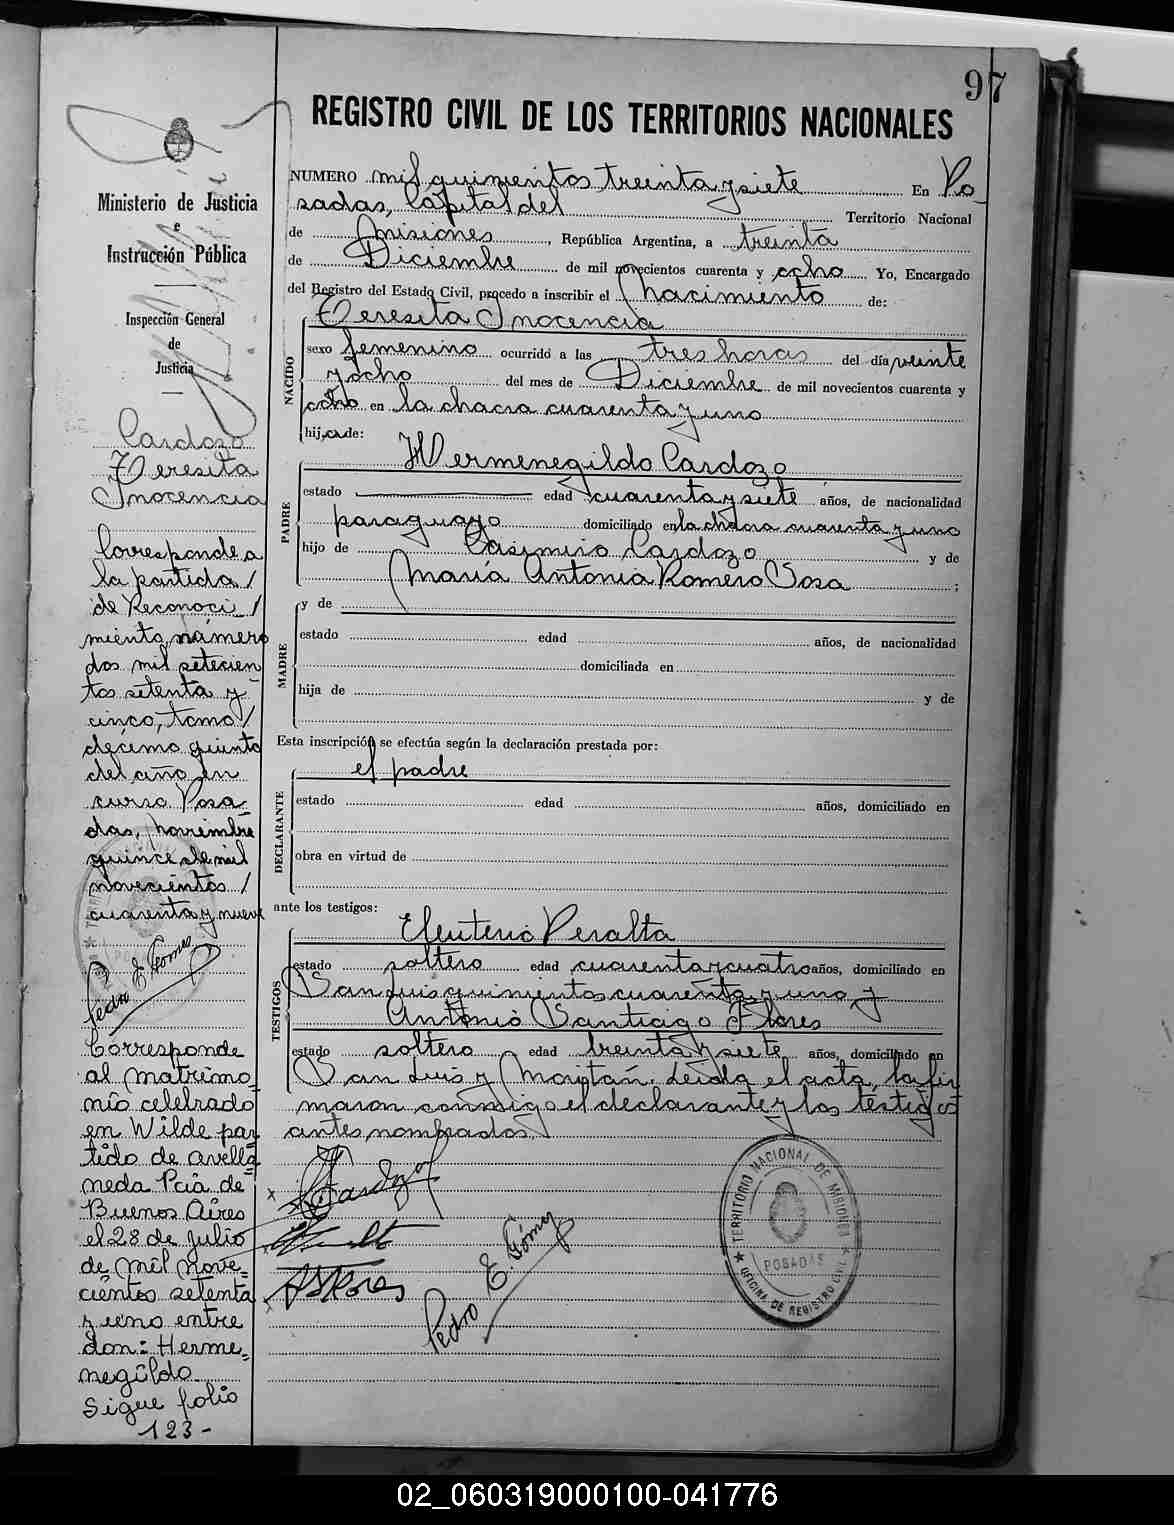 97
REGISTRO CIVIL DE LOS TERRITORIOS NACIONALES
Ministerio de Justicia
e
Instrucción Pública
Inspección General
de
Justicia
Cardozo
Teresita
Inocencia
Corresponde a
la partida /
de Reconoci /
miento, número
dos mil setecien
tos setenta y
cinco, tomo /
décimo quinto
del año en
curso. Posa
das, noviembre
quince de mil
novecientos /
cuarenta y nueve
Pedro E. Gómez
Corresponde
al matrimo
nio celebrado
en Wilde par
tido de Avella
neda Pcia de
Buenos Aires
el 28 de julio
de mil nove=
cientos setenta
y uno entre
don: Herme=
negildo
Sigue folio
123-
NUMERO mil quinientos treinta y siete En Po
sadas, Capital del Territorio Nacional
de Misiones, República Argentina, a treinta
de Diciembre de mil novecientos cuarenta y ocho Yo, Encargado
del Registro del Estado Civil, procedo a inscribir el nacimiento de:
NACIDO
Teresita Inocencia
sexo femenino ocurrido a las tres horas del día veinte
y ocho del mes de Diciembre de mil novecientos cuarenta y
ocho en la chacra cuarenta y uno
hija de:
PADRE
Hermenegildo Cardozo
estado edad cuarenta y siete años, de nacionalidad
paraguayo domiciliado en la chacra cuarenta y uno
hijo de Casimiro Cardozo y de
María Antonia Romero Sosa ;
MADRE
y de
estado edad años, de nacionalidad
domiciliada en
hija de y de
Esta inscripción se efectúa según la declaración prestada por:
DECLARANTE
el padre
estado edad años, domiciliado en
obra en virtud de
ante los testigos:
TESTIGOS
Eleuterio Peralta
estado soltero edad cuarenta y cuatro años, domiciliado en
San Luis quinientos cuarenta y uno y
Antonio Santiago Flores
estado soltero edad treinta y siete años, domiciliado en
San Luis y Maiptán. Leída el acta, la fir
maron conmigo el declarante y los testigos
antes nombrados.
Cardozo
ASFlores
Pedro E. Gómez
TERRITORIO NACIONAL DE MISIONES
POSADAS
OFICINA DE REGISTRO CIVIL
02_060319000100-041776